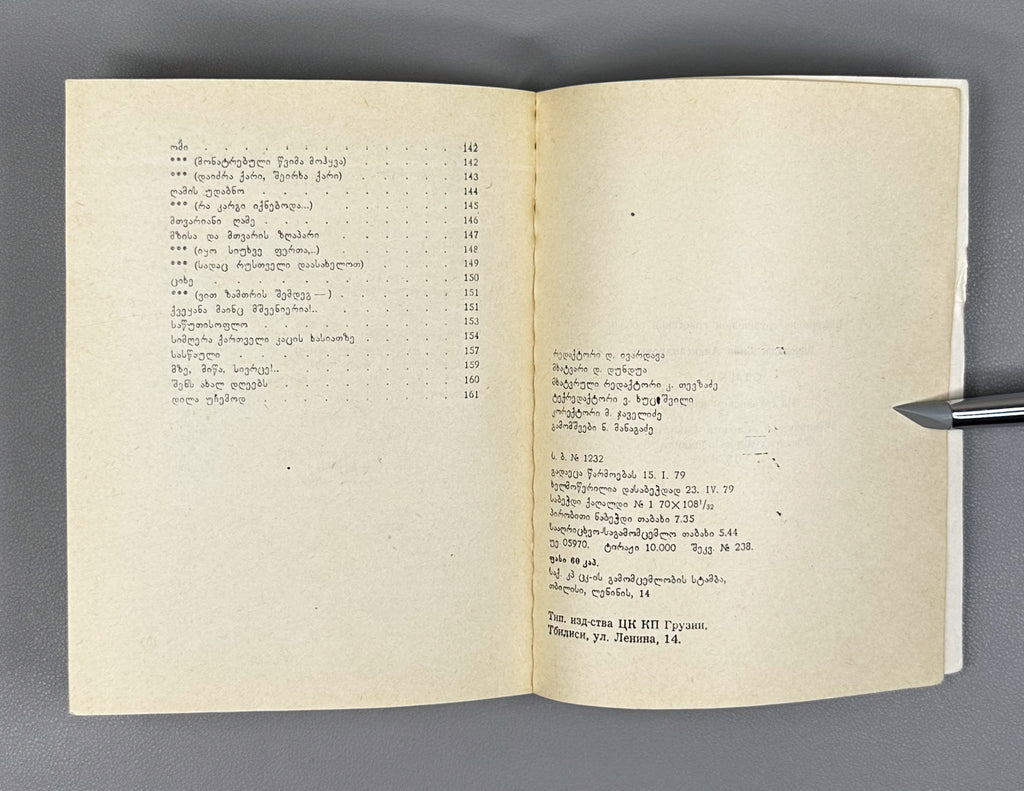 ომი . . . . . . . . . . . 142
*** (მონატრებული წვიმა მოჰყვა) . . . . 142
*** (დაიძრა ქარი, შეირხა ქარი) . . . . 143
ღამის უდაბნო . . . . . . . . 144
*** (რა კარგი იქნებოდა...) . . . . . 145
მთვარიანი ღამე . . . . . . . . 146
მზისა და მთვარის ზღაპარი . . . . . 147
*** (იყო სიუხვე ფერთა,..) . . . . . 148
*** (სადაც რუსთველი დაასახელოთ) . . . . 149
ციხე . . . . . . . . . . . 150
*** (ვით ზამთრის შემდეგ —) . . . . . 151
ქვეყანა მაინც მშვენიერია!.. . . . . . 151
საწუთისოფლო . . . . . . . . 153
სიმღერა ქართველი კაცის ხასიათზე . . . . 154
სასწაული . . . . . . . . . 157
მზე, მიწა, სივრცე!.. . . . . . . 159
შენს ახალ დღეებს . . . . . . . 160
დილა უჩემოდ . . . . . . . . 161
რედაქტორი დ. ივარდავა
მხატვარი დ. დუნდუა
მხატვრული რედაქტორი კ. თევზაძე
ტექრედაქტორი ვ. ხუციშვილი
კორექტორი მ. ჯაველიძე
გამომშვები ნ. მანაგაძე
ს. ბ. № 1232
გადაეცა წარმოებას 15. I. 79
ხელმოწერილია დასაბეჭდად 23. IV. 79
საბეჭდი ქაღალდი № 1 70×108¹/₃₂
პირობითი ნაბეჭდი თაბახი 7.35
სააღრიცხვო-საგამომცემლო თაბახი 5.44
უე 05970. ტირაჟი 10.000 შეკვ. № 238.
ფასი 60 კაპ.
საქ. კპ ცკ-ის გამომცემლობის სტამბა,
თბილისი, ლენინის, 14
Тип. изд-ства ЦК КП Грузии,
Тбилиси, ул. Ленина, 14.